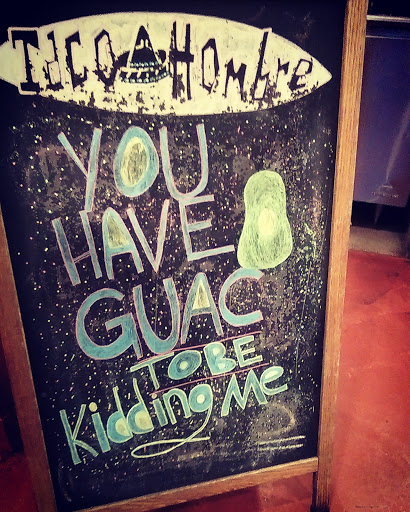 Taco Hombre
YOU
HAVE
GUAC
TO BE
Kidding Me